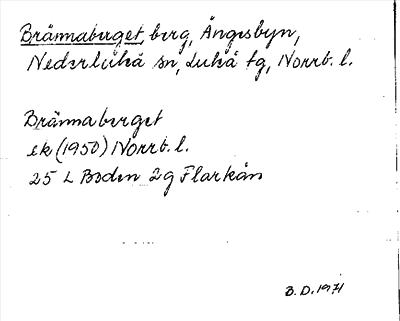 Brännaberget, berg, Ängesbyn,
Nederluleå sn, Luleå tg, Norrb. l.
Brännaberget
ek (1950) Norrb. l.
25 L Boden 2g Flarkån
B.D. 1971